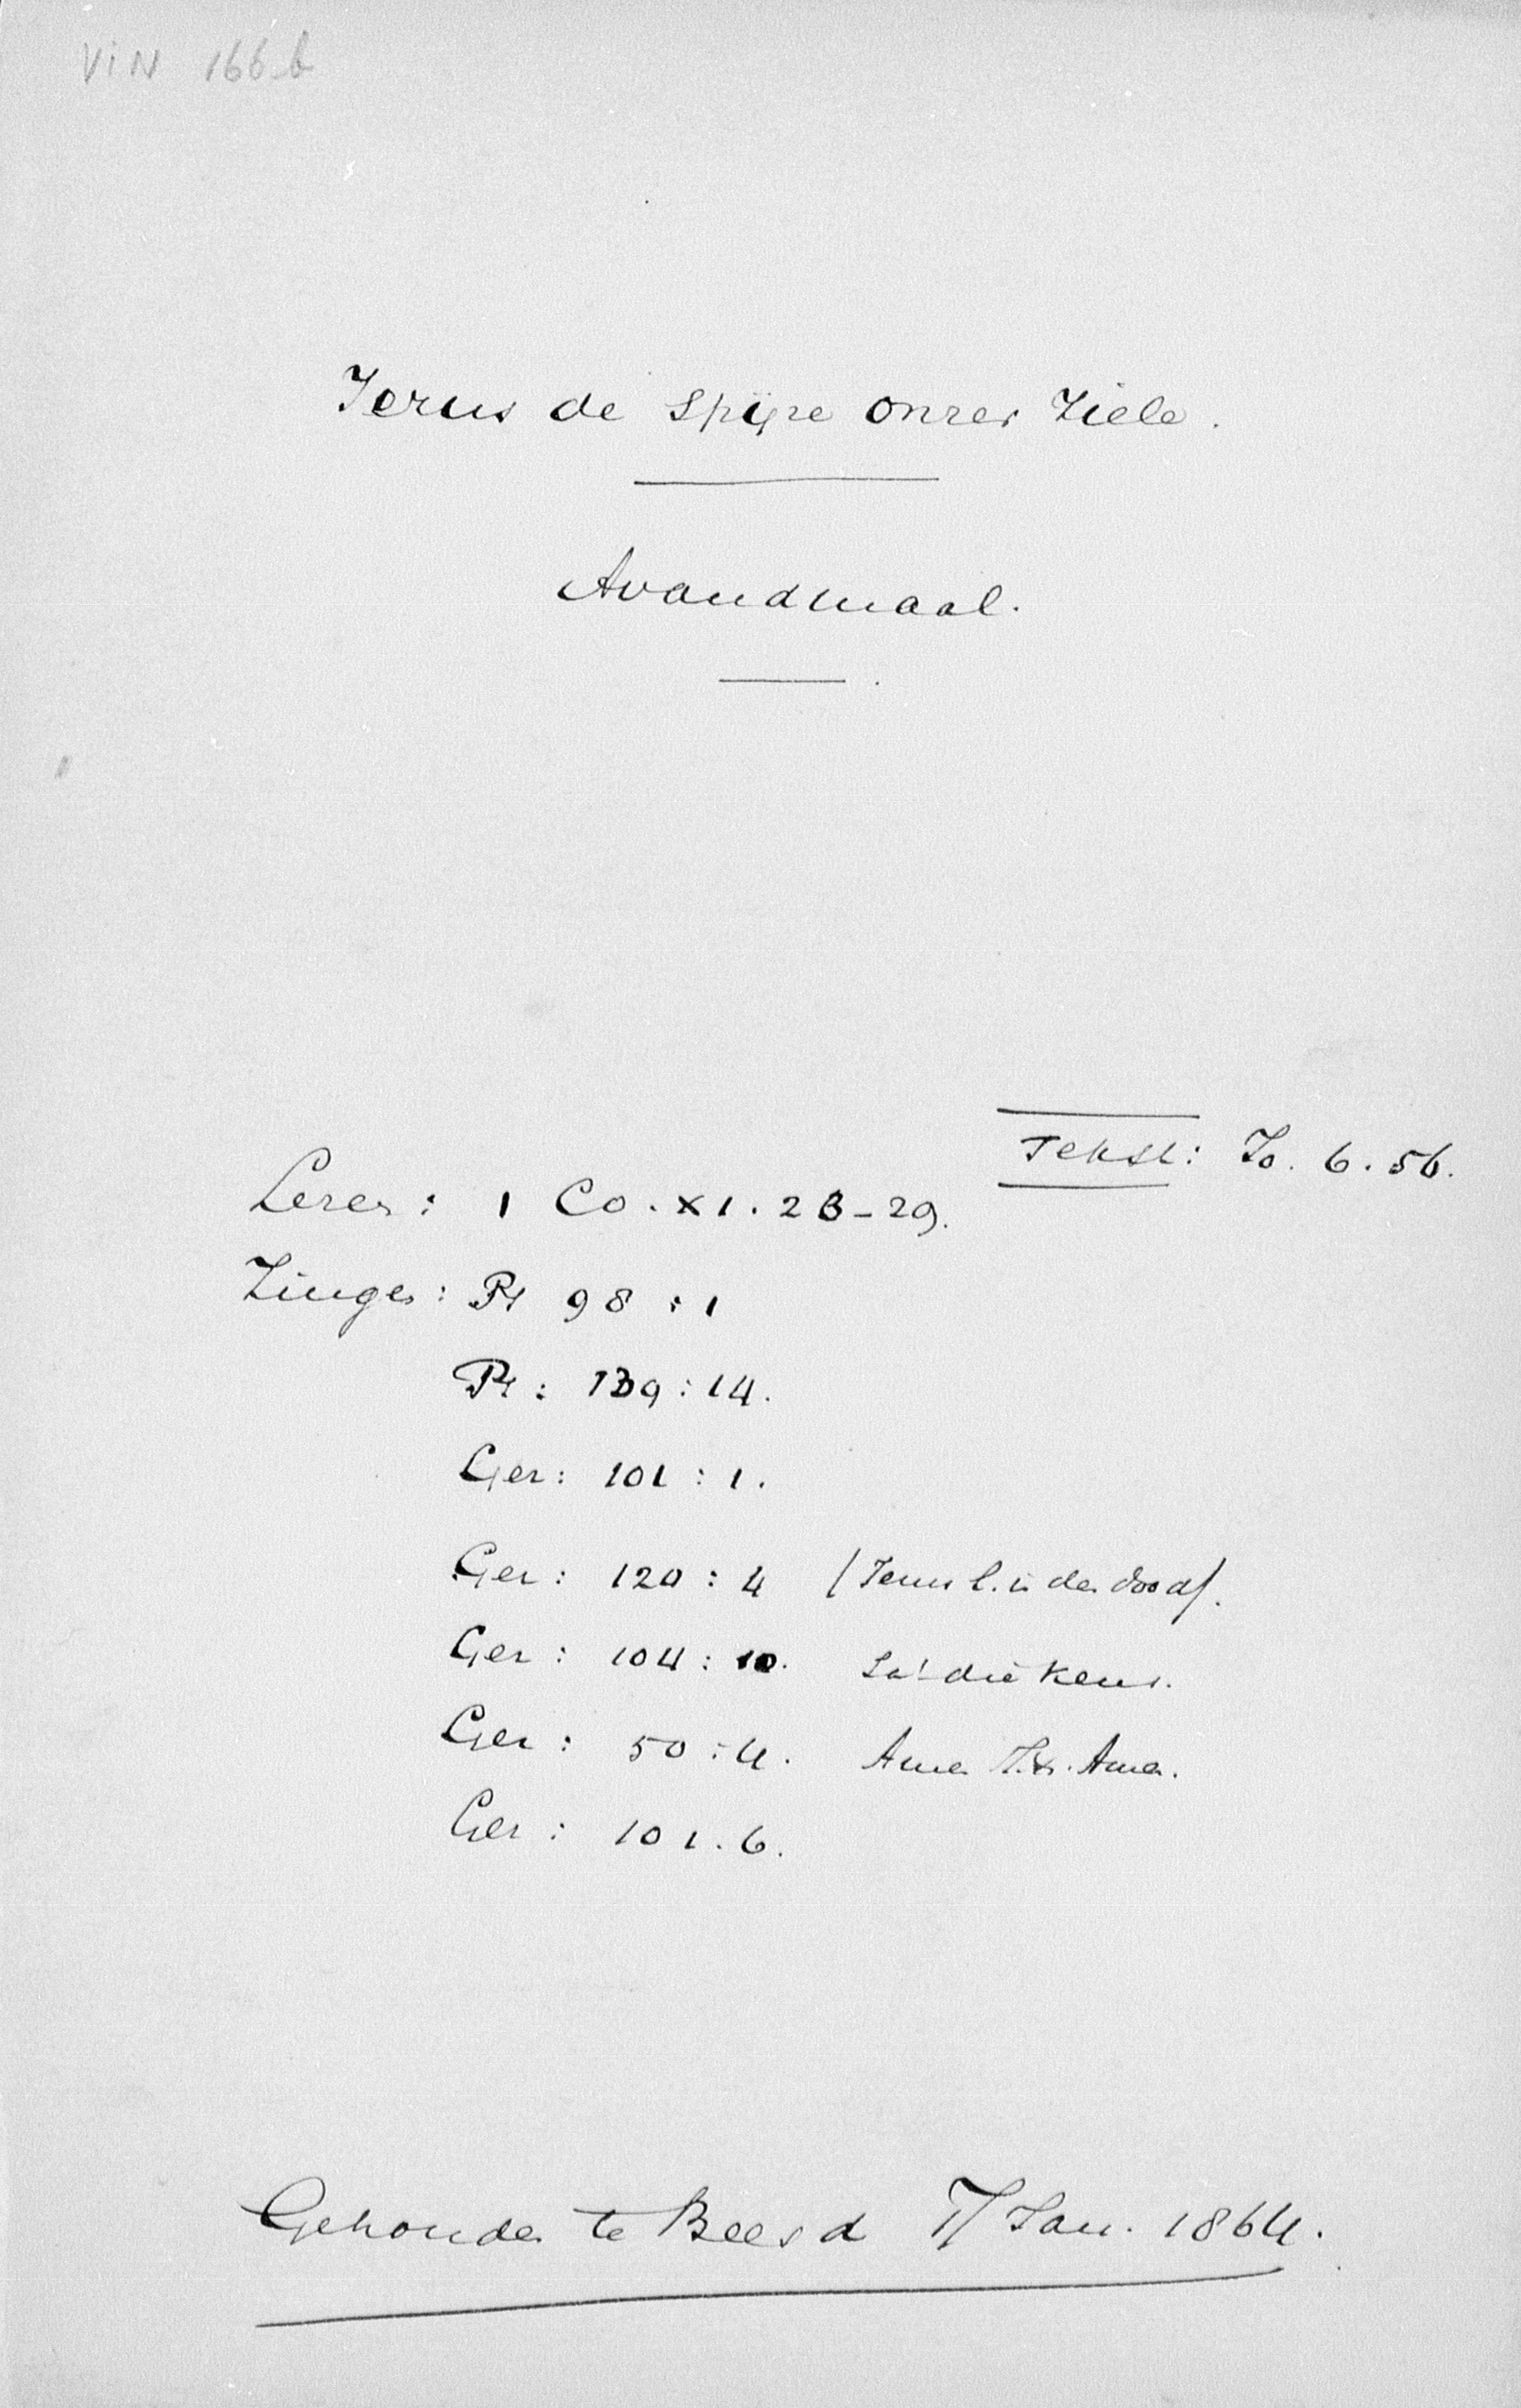 VIN 166b
Jezus de spijze onzer Ziele.
Avondmaal.
Tekst: Jo. 6. 56.
Lezen: 1 Co. XI. 23-29.
Zingen: Ps 98 : 1
Ps: 139 : 14.
Gez: 101 : 1.
Gez: 120 : 4 (Jezus l. in den dood).
Gez: 104 : 10. die kens.
Gez: 50 : 4. Amen J. Amen.
Gez: 101. 6.
Gehouden te Beesd Jan. 1864.